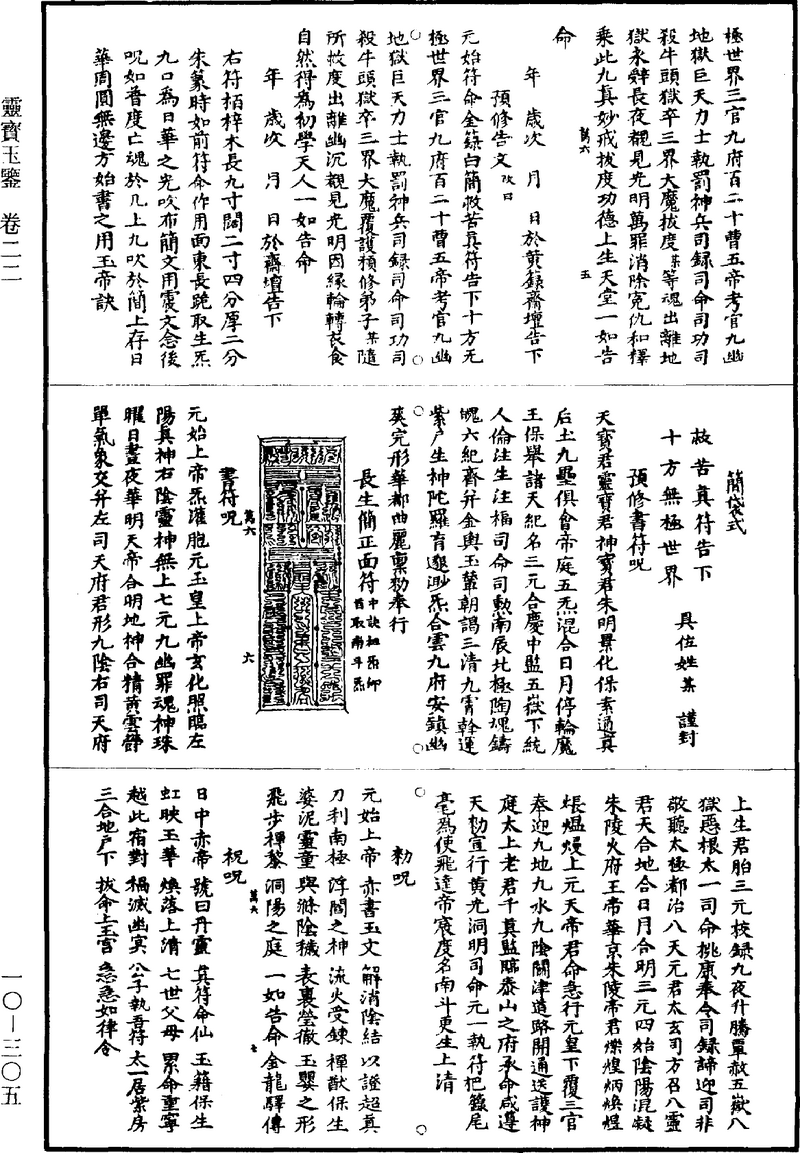 靈寶玉鑒 卷二二
極世界三官九府百二十曹五帝考官九幽
地獄巨天力士執罰神兵司錄司命司功司
殺牛頭獄卒三界大魔拔度某等魂出離地
獄永辭長夜覩見光明萬罪消除冤仇和釋
乘此九真妙戒拔度功德上生天堂一如告
萬六
五
命
年 歲次 月 日於黃籙齋壇告下
預修告文改曰
元始符命金籙白簡救苦真符告下十方無
極世界三官九府百二十曹五帝考官九幽
地獄巨天力士執罰神兵司錄司命司功司
殺牛頭獄卒三界大魔覆護預修弟子某隨
所拔度出離幽沉覩見光明因緣輪轉衣食
自然得為初學天人一如告命
年 歲次 月 日於齋壇告下
右符栢梓木長九寸闊二寸四分厚二分
朱篆時如前符命作用面東長跪取生炁
九口為日華之光吹布簡文用震文念後
呪如普度亡魂於几上九吹於簡上存日
華周圓無邊方始書之用玉帝訣
簡袋式
救苦真符告下 具位姓某 謹封
十方無極世界
預修書符呪
天寶君靈寶君神寶君朱明景化保素通真
后土九壘俱會帝庭五炁混合日月停輪魔
王保舉諸天紀名三元合慶中監五嶽下統
人倫注生注福司命司勳南辰北極陶魂鑄
魄六紀齋并金輿玉輦朝謁三清九霄幹運
紫戶生神陀羅育邈渺炁合雲九府安鎮幽
爽完形華都曲麗稟勑奉行
長生簡正面符中訣祖炁卯酉取南斗炁
萬六
六
書符呪
元始上帝炁灌胞元玉皇上帝玄化照臨左
陽真神右陰靈神無上七元九幽罪魂神珠
曜日晝夜華明天帝合明地神合精黃雲靜
單氣象交并左司天府君形九陰右司天府
上生君胎三元校錄九夜升騰覃赦五嶽八
獄惡根太一司命桃康奉令司錄諦迎司非
敬聽太極都治八天元君太玄司方召八靈
君天合地合日月合明三元四始陰陽混凝
朱陵火府王帝華京朱陵帝君爍煌炳煥煌
煨熅熳上元天帝君命急行元皇下覆三官
奉迎九地九水九陰關津道路開通送護神
庭太上老君千真監臨泰山之府承命咸遵
天勑宣行黃光洞明司命元一執符把籙尾
毫為使飛達帝宸度名南斗更生上清
勑呪
元始上帝 赤書玉文 解消陰結 以證超真
刀利南極 浮閻之神 流火受鍊 樿猷保生
婆泥靈童 與滌陰穢 表裏瑩徹 玉嬰之形
飛步樿黎 洞陽之庭 一如告命 金龍驛傳
萬六
七
祝呪
日中赤帝 號曰丹靈 真符命仙 玉籍保生
虹映玉華 煥落上清 七世父母 累命重寧
越此宿對 禍滅幽冥 公子執吾符 太一居紫房
三合地戶下 拔命上玉宮 急急如律令
一〇—三〇五